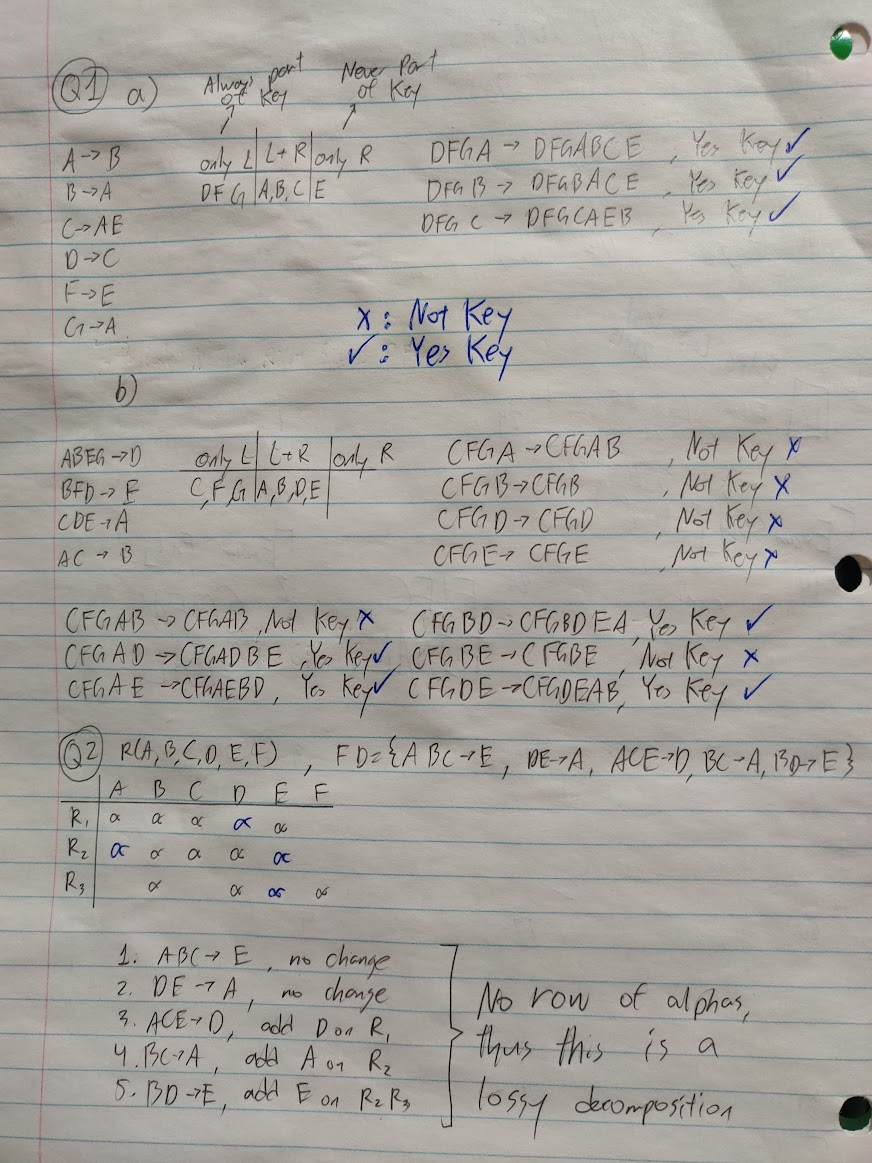 Q1 a) Always part of Key Never Part of Key
A → B only L | L + R | only R DFGA → DFGABCE , Yes Key ✓
B → A DFG | A, B, C | E DFGB → DFGBACE , Yes Key ✓
C → AE DFGC → DFGCAEB , Yes Key ✓
D → C
F → E
G → A
x : Not Key
✓ : Yes Key
b)
ABEG → D only L | L + R | only R CFGA → CFGAB , Not Key x
BFD → E C, F, G | A, B, D, E CFGB → CFGB , Not Key x
CDE → A CFGD → CFGD , Not Key x
AC → B CFGE → CFGE , Not Key x
CFGAB → CFGAB , Not Key x CFGBD → CFGBDEA, Yes Key ✓
CFGAD → CFGADBE , Yes Key ✓ CFGBE → CFGBE , Not Key x
CFGAE → CFGAEBD, Yes Key ✓ CFGDE → CFGDEAB, Yes Key ✓
Q2 R(A, B, C, D, E, F) , FD = {ABC → E, DE → A, ACE → D, BC → A, BD → E}
A B C D E F
R1 α α α α α
R2 α α α α α
R3 α α α α
1. ABC → E , no change
2. DE → A , no change
3. ACE → D, add D on R1
4. BC → A, add A on R2
5. BD → E, add E on R2 R3
No row of alphas,
thus this is a
lossy decomposition